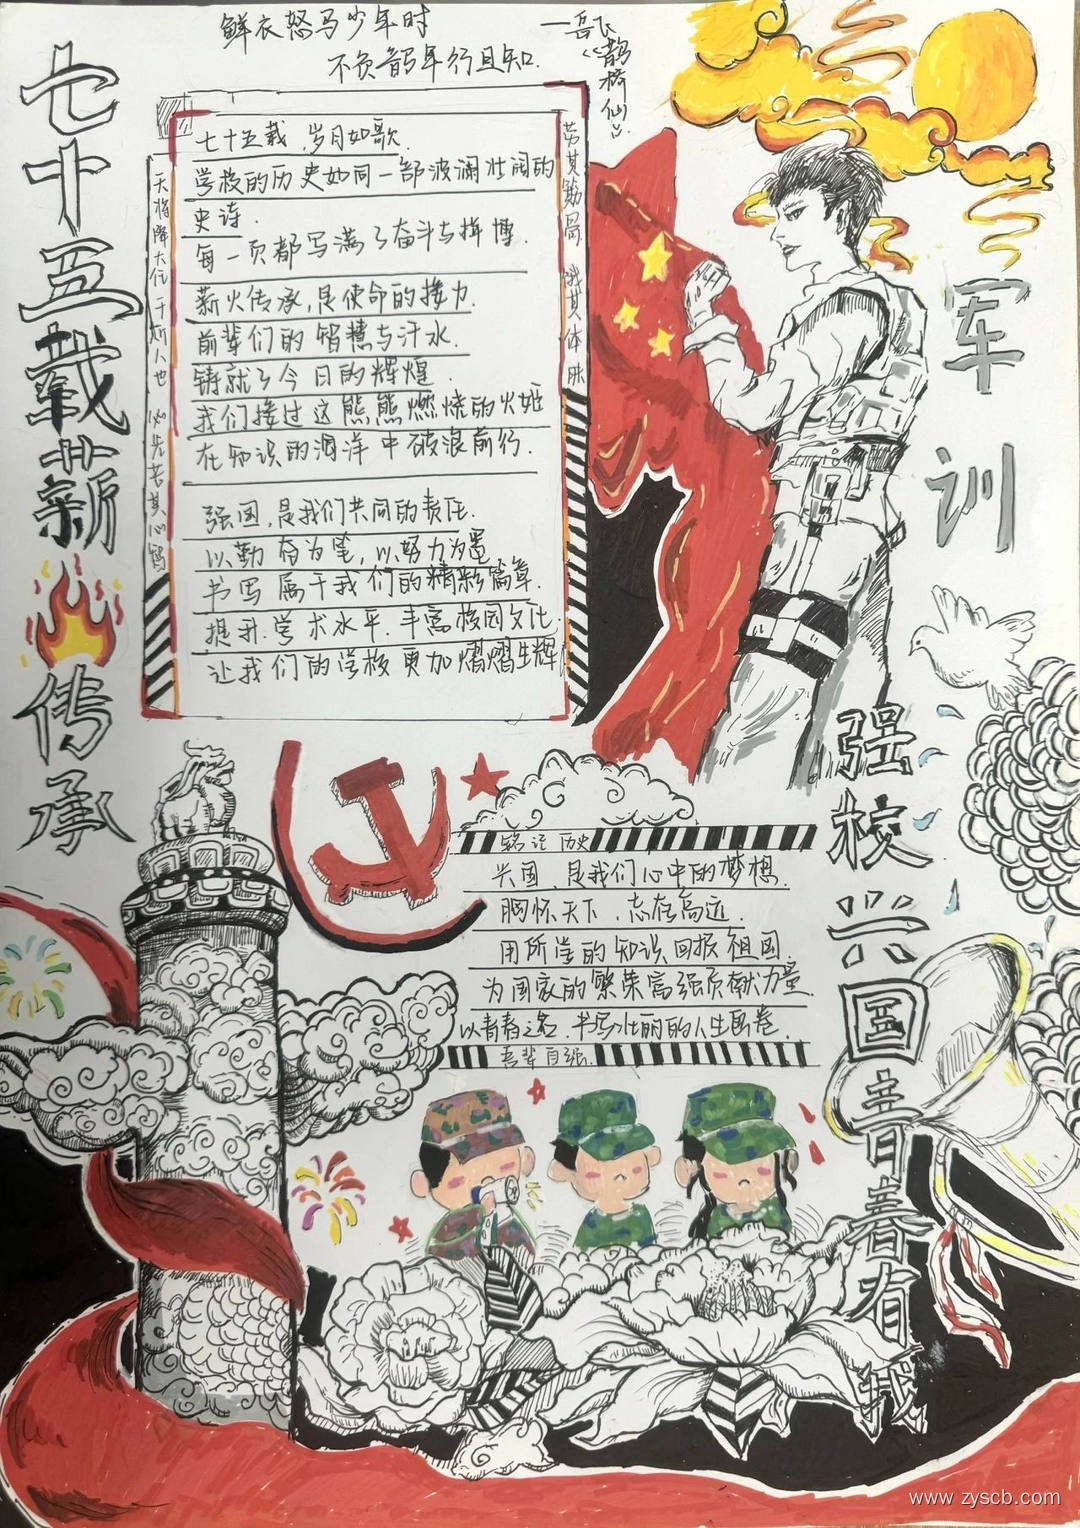 鲜衣怒马少年时
不负韶年行且知.
一岳飞
《鹊桥仙》
七十五载薪火传承
天将降大任于斯人也 必先苦其心智
七十五载,岁月如歌.
学校的历史如同一部波澜壮阔的
史诗.
每一页都写满了奋斗与拼搏.
薪火传承,是使命的接力.
前辈们的智慧与汗水.
铸就了今日的辉煌.
我们接过这熊熊燃烧的火炬
在知识的海洋中破浪前行.
强国,是我们共同的责任.
以勤奋为笔,以努力为墨
书写属于我们的精彩篇章.
提升学术水平.丰富校园文化.
让我们的学校更加熠熠生辉
劳其筋骨 饿其体肤
军训
强校兴国青春有我
铭记历史
兴国,是我们心中的梦想.
胸怀天下,志在高远.
用所学的知识回报祖国.
为国家的繁荣富强贡献力量.
以青春之名,书写壮丽的人生画卷.
吾辈自强.
www.zyscb.com